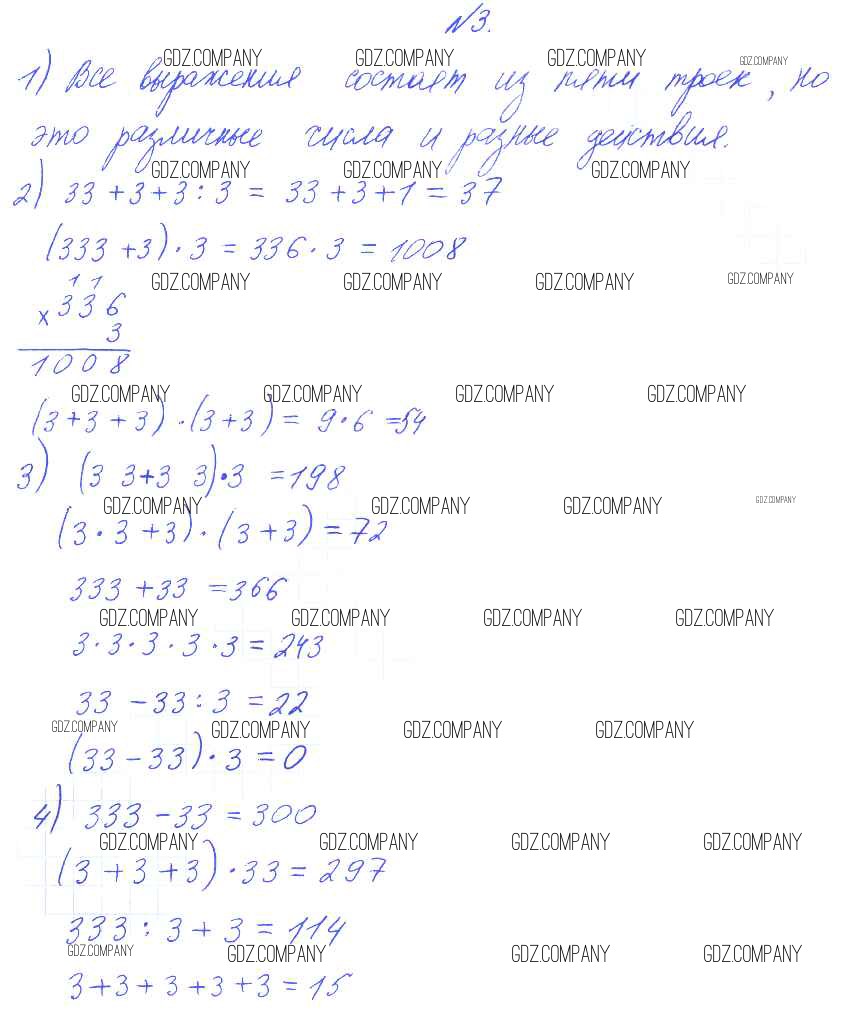 №3.
GDZ.COMPANY GDZ.COMPANY GDZ.COMPANY GDZ.COMPANY
1) Все выражения состоят из пяти троек, но
это различные числа и разные действия.
GDZ.COMPANY GDZ.COMPANY GDZ.COMPANY
2) 33 + 3 + 3 : 3 = 33 + 3 + 1 = 37
(333 + 3) · 3 = 336 · 3 = 1008
GDZ.COMPANY GDZ.COMPANY GDZ.COMPANY GDZ.COMPANY
1 1
x 336
3
1008
GDZ.COMPANY GDZ.COMPANY GDZ.COMPANY GDZ.COMPANY
(3 + 3 + 3) · (3 + 3) = 9 · 6 = 54
3) (3 3 + 3 3) · 3 = 198
GDZ.COMPANY GDZ.COMPANY GDZ.COMPANY GDZ.COMPANY
(3 · 3 + 3) · (3 + 3) = 72
333 + 33 = 366
GDZ.COMPANY GDZ.COMPANY GDZ.COMPANY GDZ.COMPANY
3 · 3 · 3 · 3 · 3 = 243
33 - 33 : 3 = 22
GDZ.COMPANY GDZ.COMPANY GDZ.COMPANY GDZ.COMPANY
(33 - 33) · 3 = 0
4) 333 - 33 = 300
GDZ.COMPANY GDZ.COMPANY GDZ.COMPANY GDZ.COMPANY
(3 + 3 + 3) · 33 = 297
333 : 3 + 3 = 114
GDZ.COMPANY GDZ.COMPANY GDZ.COMPANY GDZ.COMPANY
3 + 3 + 3 + 3 + 3 = 15